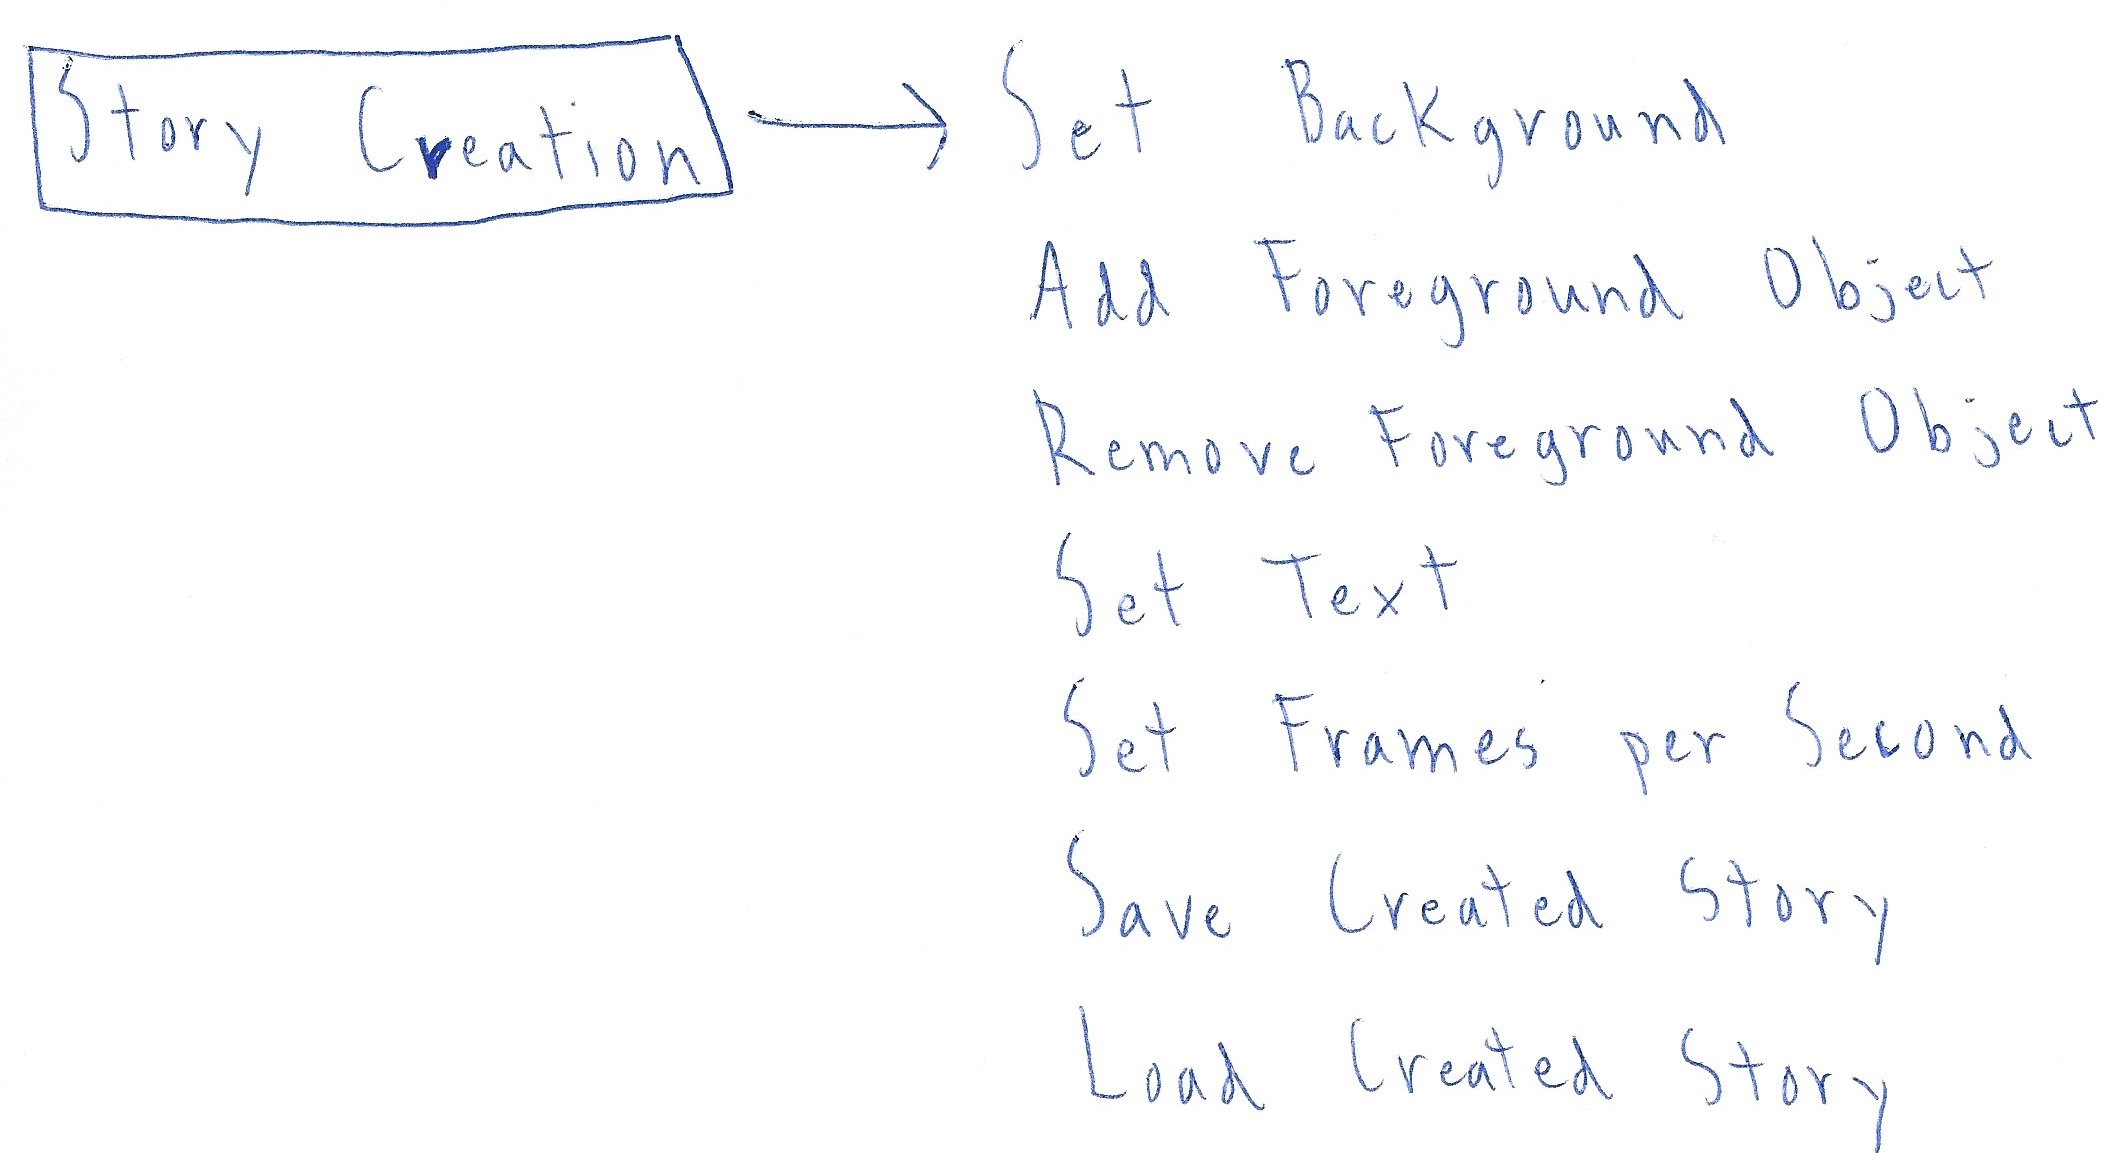 Story Creation → Set Background
Add Foreground Object
Remove Foreground Object
Set Text
Set Frames per Second
Save Created Story
Load Created Story